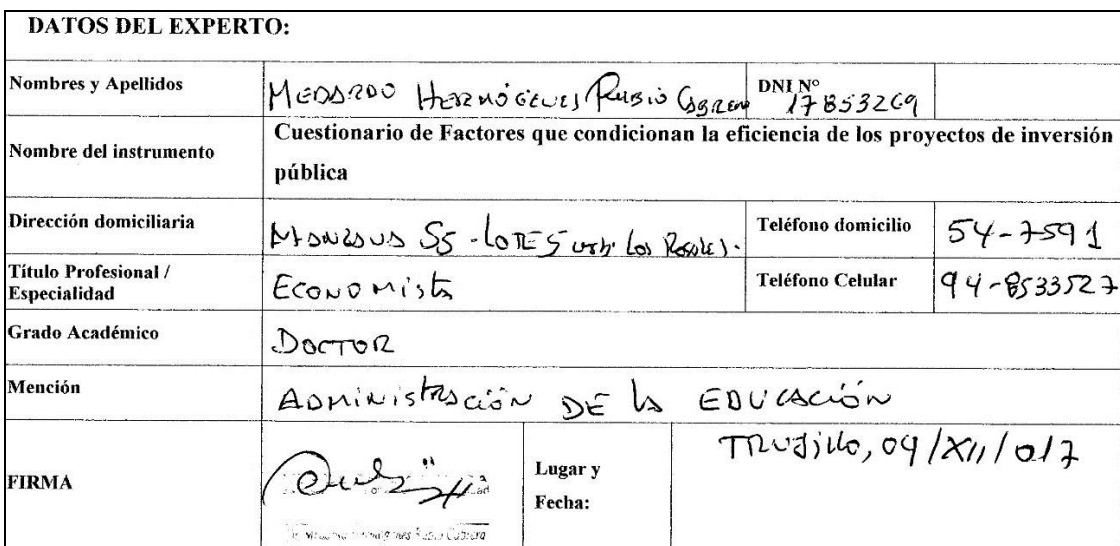 DATOS DEL EXPERTO:
Nombres y Apellidos MEDARDO HERMÓGENES RUBIO CABRERA DNI N° 17853269
Nombre del instrumento Cuestionario de Factores que condicionan la eficiencia de los proyectos de inversión
pública
Dirección domiciliaria MANZANA S5 - LOTE 5 urb. Los Rosales. Teléfono domicilio 54-7591
Título Profesional /
Especialidad ECONOMISTA Teléfono Celular 94-8533527
Grado Académico DOCTOR
Mención ADMINISTRACIÓN DE LA EDUCACIÓN
FIRMA Lugar y
Fecha: TRUJILLO, 04/XII/017
Rubio Cabrera